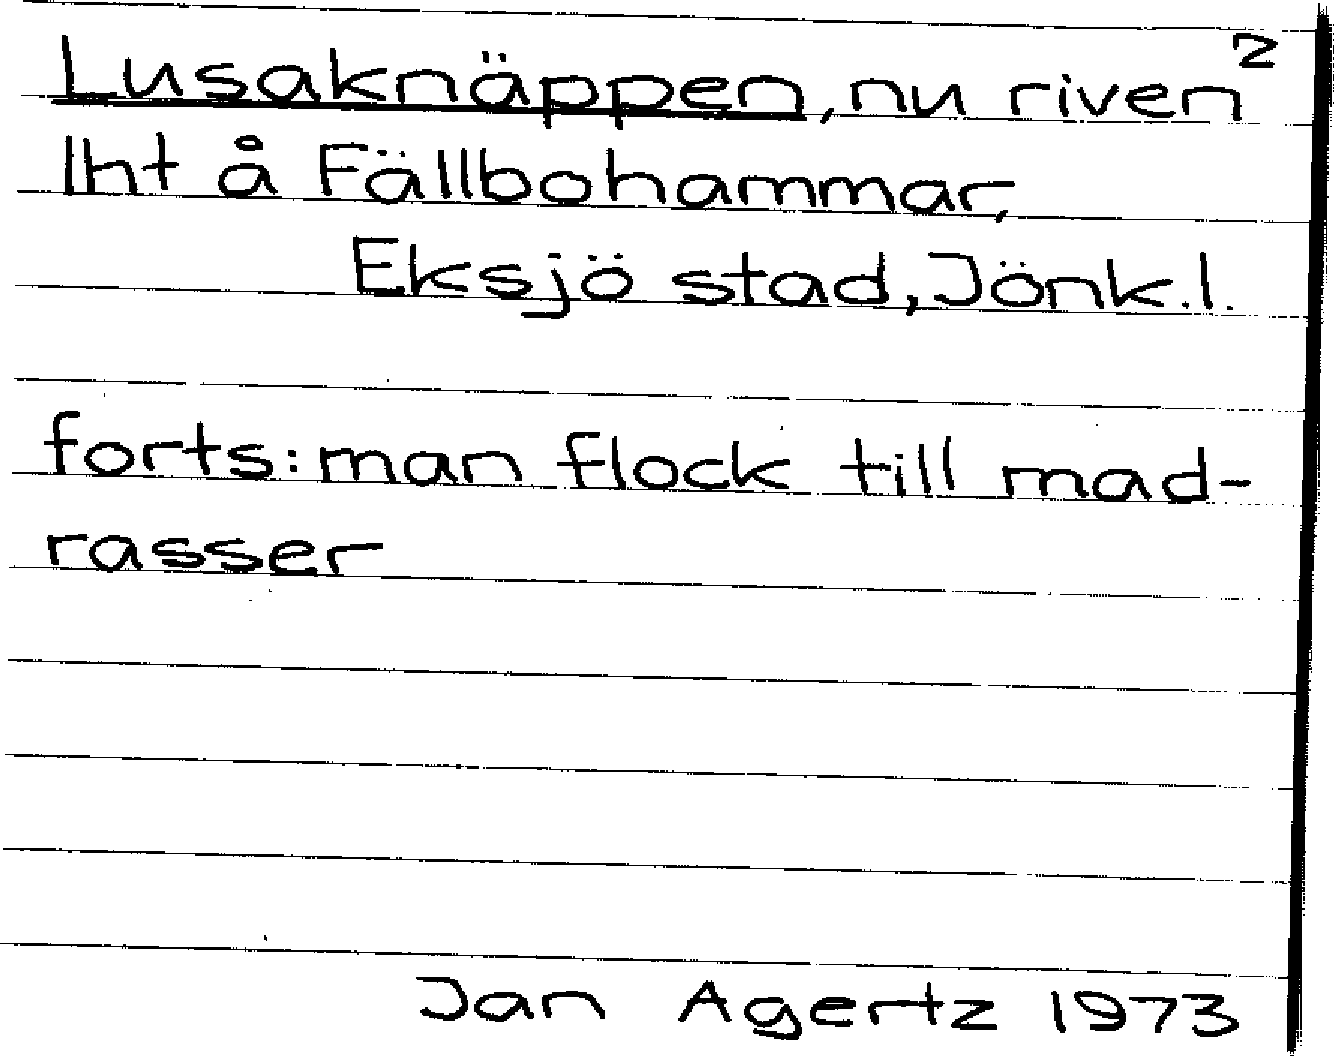 2
Lusaknäppen, nu riven
lht å Fällbohammar,
Eksjö stad, Jönk.l.
forts: man flock till mad-
rasser
Jan Agertz 1973